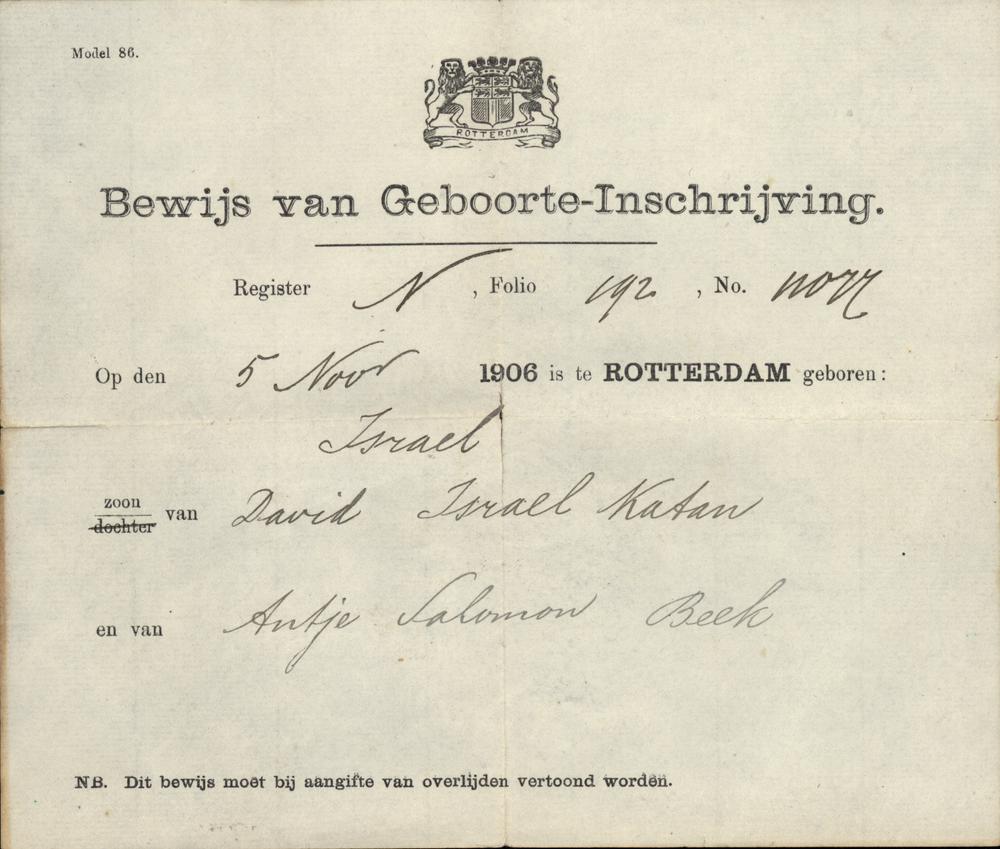 Model 86.
ROTTERDAM
Bewijs van Geboorte-Inschrijving.
Register N, Folio 192, No.
Op den 5 Novr 1906 is te ROTTERDAM geboren:
Israel
zoon
dochter van David Israel Katan
en van Antje Salomon Beek
NB. Dit bewijs moet bij aangifte van overlijden vertoond worden.